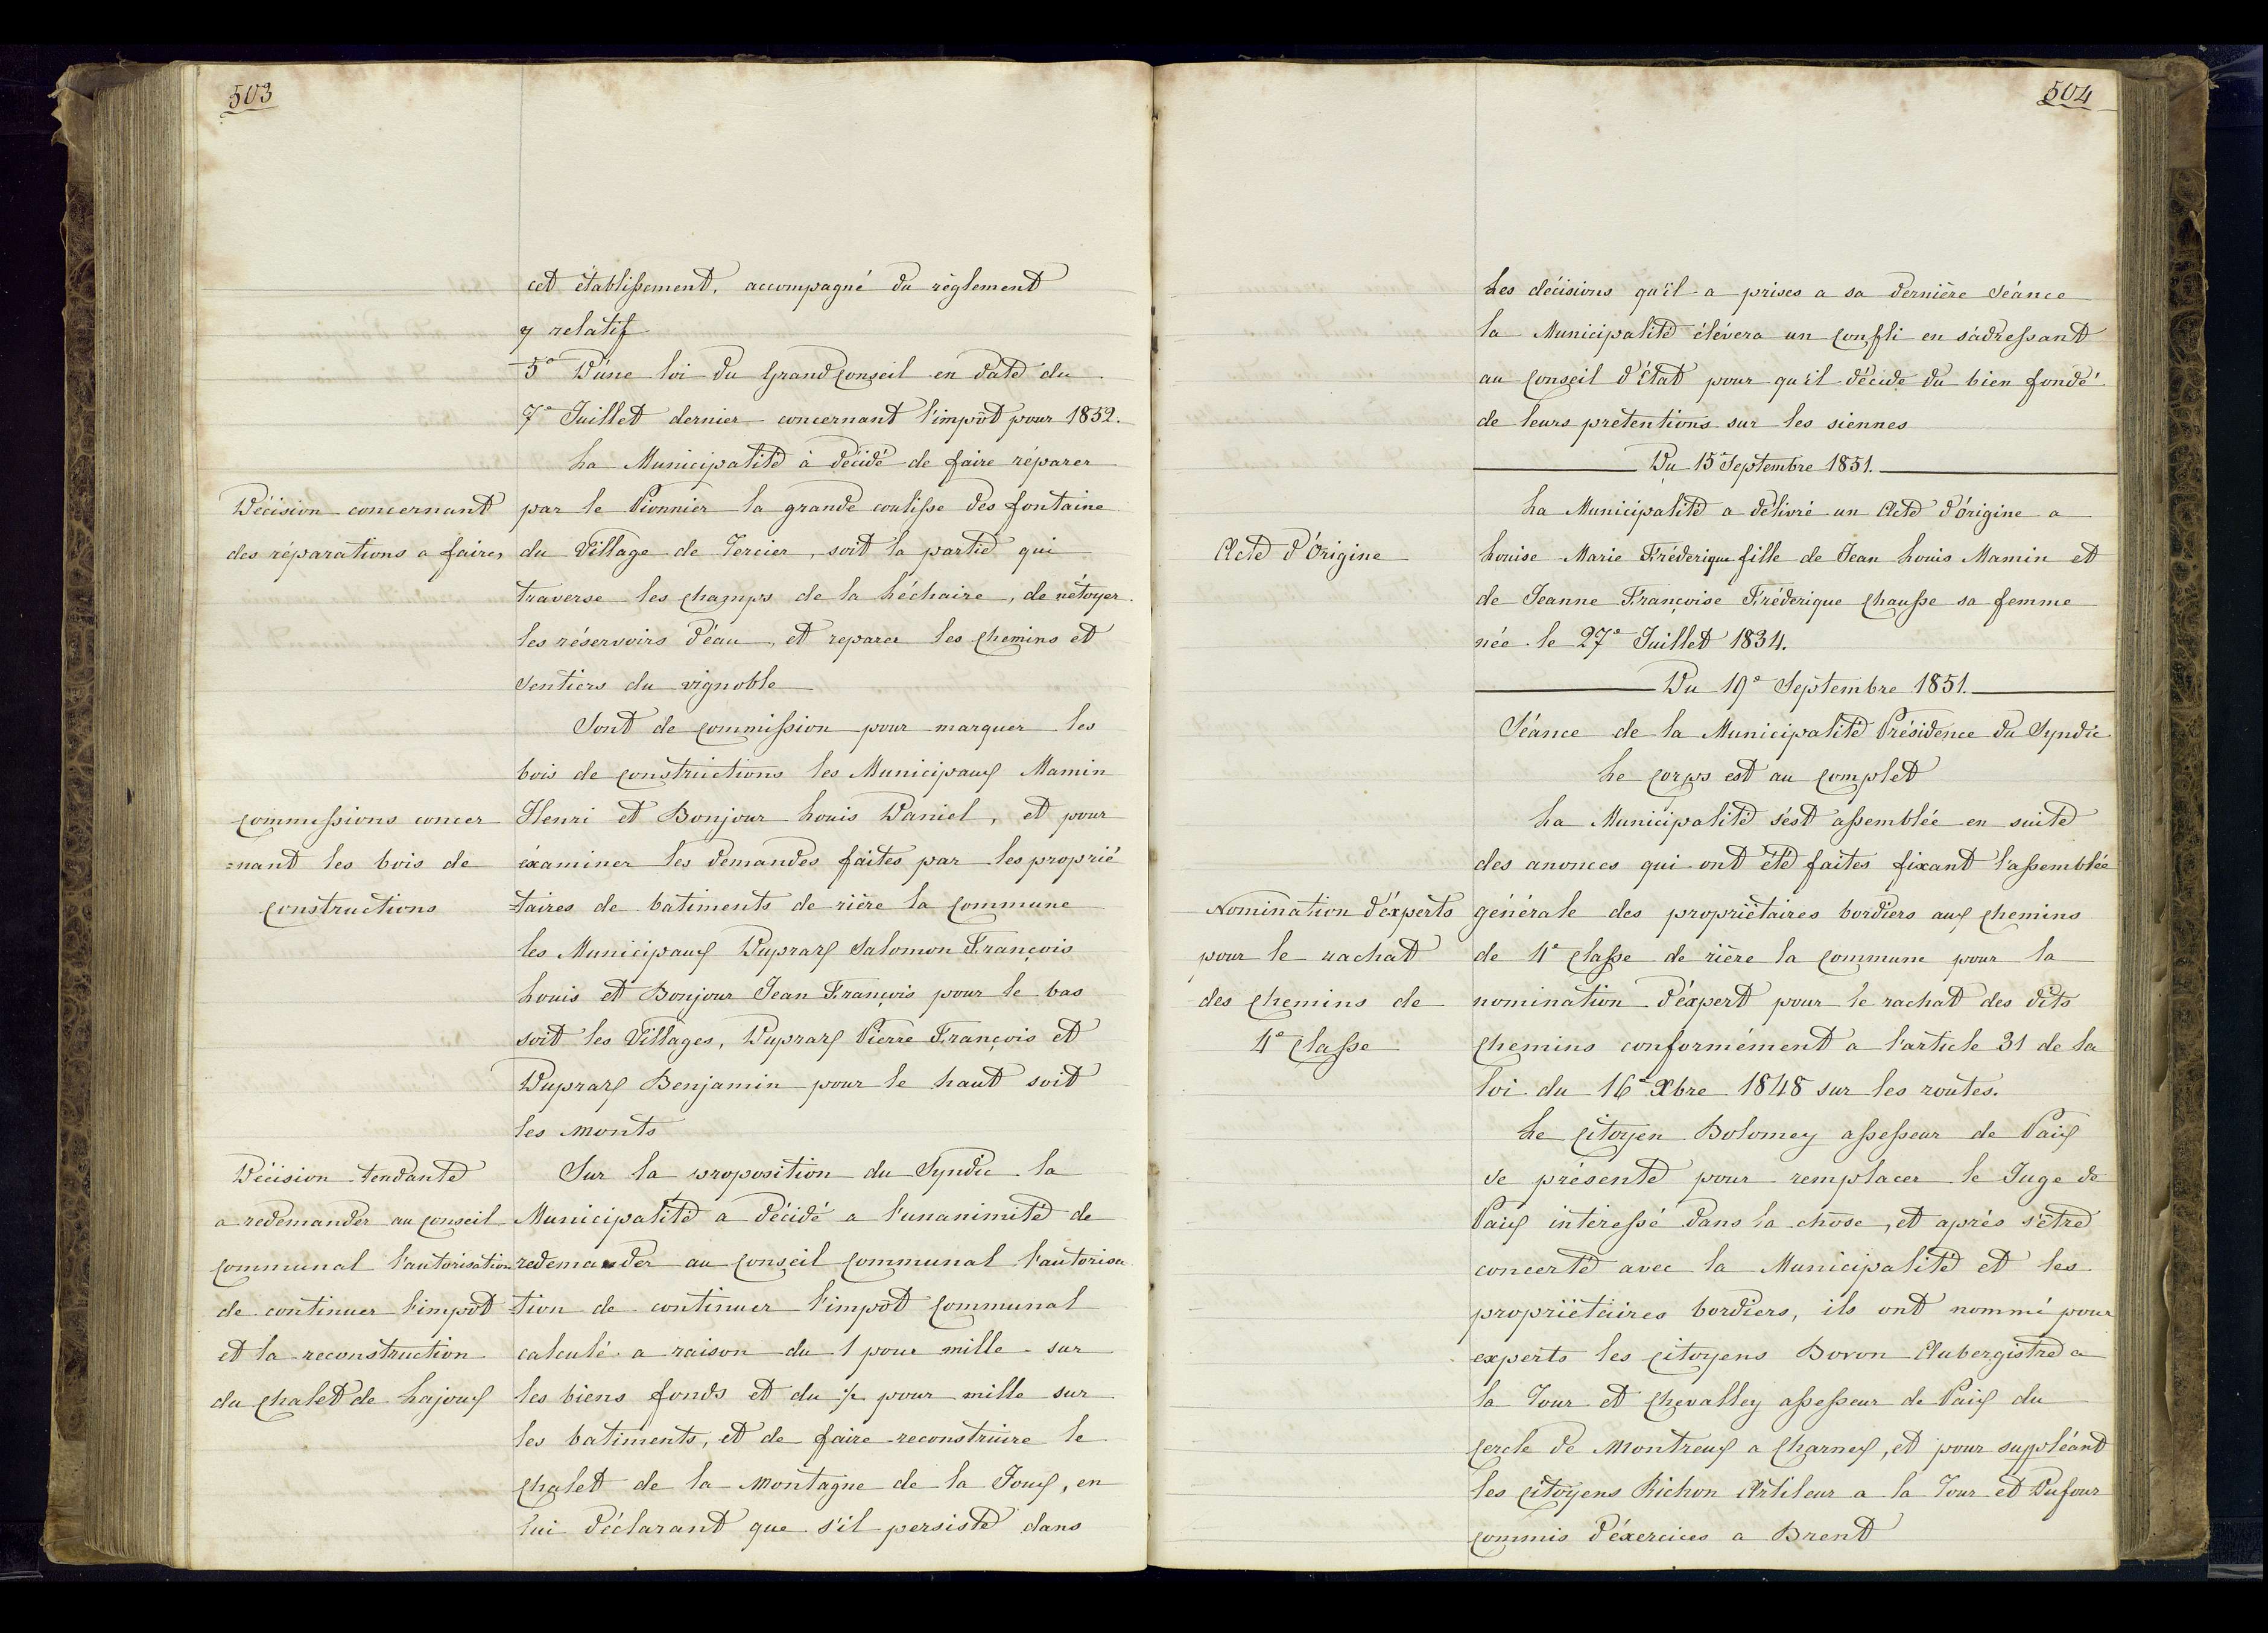 503
cet établissement, accompagné du règlement
y relatif
5° D'une loi du Grand Conseil en date du
7e Juillet dernier concernant l'impôt pour 1852.
La Municipalité à décidé de faire réparer
Décision concernant
des réparations a faire,
par le Pionnier la grande coulisse des fontaine
du Village de Tercier, soit la partie qui
traverse les champs de la Léchaire, de nétoyer
les réservoirs d'éau, et reparer les chemins et
sentiers du vignoble
Sont de commission pour marquer les
bois de constructions les Municipaux Mamin
commissions concer
=nant les bois de
constructions
Henri et Bonjour Louis Daniel, et pour
éxaminer les demandes faites par les proprié
=taires de batiments de rière la commune
les Municipaux Dupraz Salomon François
Louis et Bonjour Jean François pour le bas
soit les Villages, Dupraz Pierre François et
Dupraz Benjamin pour le haut soit
les monts
Décision tendante
a redemander au conseil
communal l'autorisation
de continuer l'impôt
et la reconstruction
du chalet de Lajoux
Sur la proposition du Syndic la
Municipalité a décidé a l'unanimité de
redemander au conseil communal l'autorisa
=tion de continuer l'impôt communal
calculé a raison du 1 pour mille sur
les biens fonds et du ½ pour mille sur
les batiments, et de faire reconstruire le
chalet de la montagne de la Joux, en
lui déclarant que s'il persiste dans
504
les décisions qu'il a prises a sa dernière séance
la Municipalité élévera un confli en s'adressant
au conseil d'État pour qu'il décide du bien fondé
de leurs pretentions sur les siennes
Du 15e Septembre 1851.
La Municipalité a délivré un Acte d'origine a
Acte d'Origine
Louise Marie Fréderique fille de Jean Louis Mamin et
de Jeanne Françoise Fréderique Chausse sa femme
née le 27e Juillet 1834.
Du 19e Septembre 1851.
Séance de la Municipalité Présidence du Syndic
Le corps est au complet
La Municipalité s'est assemblée en suite
des anonces qui ont été faites fixant l'assemblée
Nomination d'éxperts
pour le rachat
des chemins de
4e classe
générale des propriétaires bordiers aux chemins
de 4e classe de rière la commune pour la
nomination d'éxpert pour le rachat des dits
chemins conformément a l'article 31 de la
loi du 16e Xbre 1848 sur les routes.
Le citoyen Bolomey assesseur de Paix
se présente pour remplacer le Juge de
Paix intéressé dans la chôse, et après s'être
concerté avec la Municipalité et les
propriétaires bordiers, ils ont nommé pour
experts les citoyens Bovon Aubergiste a
la Tour et Chevalley assesseur de Paix du
cercle de Montreux a Charnex, et pour suppléant
les citoyens Richon Artileur a la Tour et Dufour
commis d'éxercices a Brent